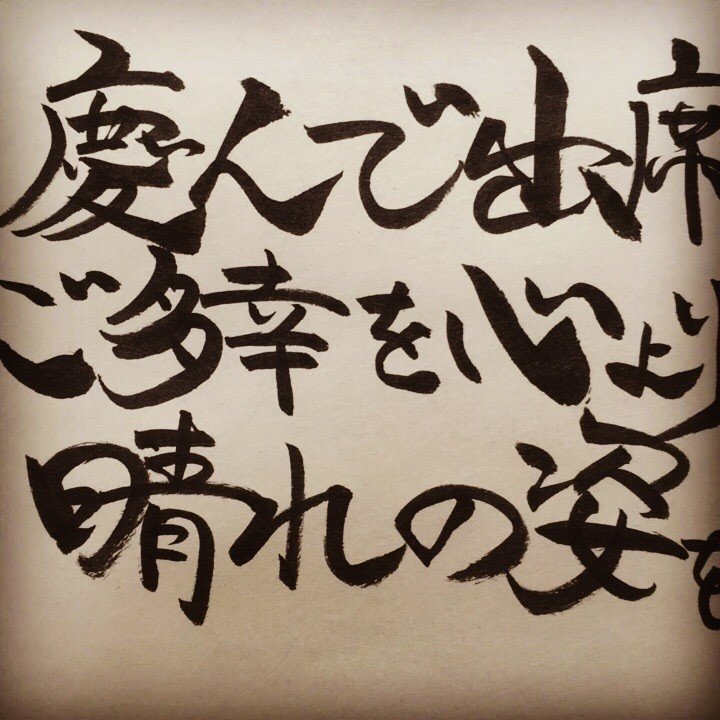 慶んで出席
ご多幸を心より
晴れの姿を